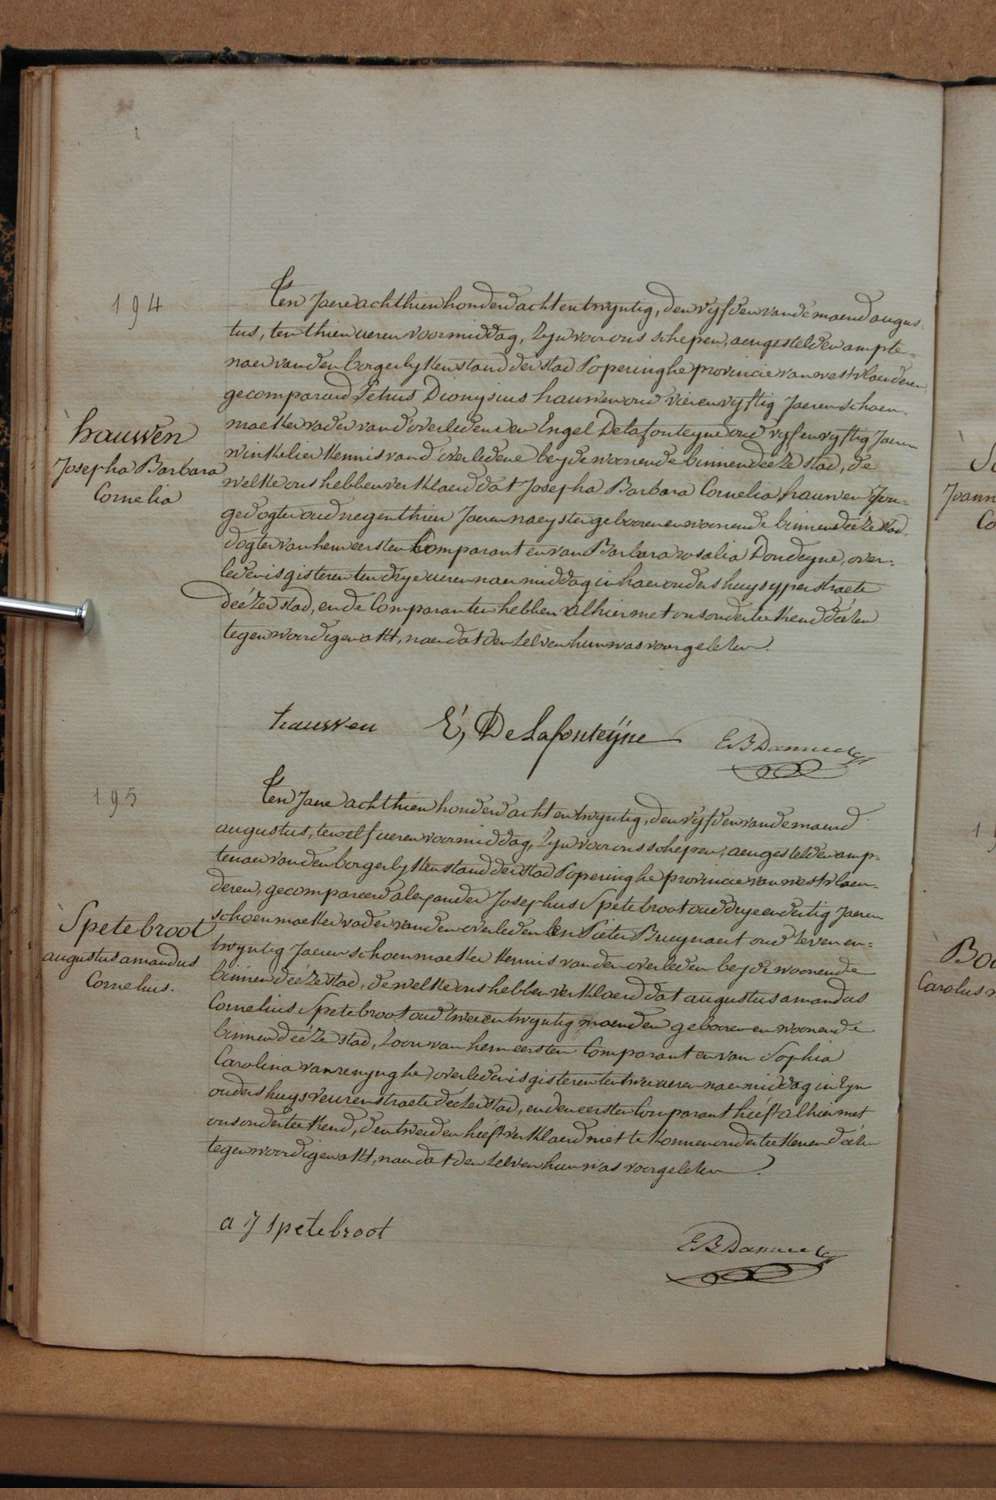 194
Ten Jaere achthien honderd acht en twyntig, den vyfden van de maend augus-
tus, ten thien ueren voormiddag, Zyn voor ons schepen, aengestelden ampte-
naer van den borgerlyken stand der stad Poperinghe provincie van westvlaenderen
gecompareerd Petrus Dionysius hauwen oud vier en vyftig Jaeren schoen-
maeker vader van d'overledene en Engel Delafonteyne oud vyf en vyftig Jaeren
winkelier kennis van d'overledene beyde woonende binnen deéze stad, de
welke ons hebben verklaerd dat Josepha Barbara Cornelia hauwen Jon-
ge dogter oud negenthien Jaeren naeyster gebooren en woonende binnen deéze stad,
dogter van hem eersten Comparant en van Barbara rosalia Dondeyne, over-
leden is gisteren ten drye ueren naermiddag in haer ouders huys yperstraete
deézer stad, en de Comparanten hebben alhier met ons onderteekend déézen
tegenwoordigen akt, naer dat den zelven hun was voorgelezen.
hauwen
Josepha Barbara
Cornelia
hauwen E, DeLafonteÿne
195
Ten Jaere achthien honderd acht en twyntig, den vyfden van de maend
augustus, ten elf ueren voormiddag, Zyn voor ons schepen, aengestelden amp-
tenaer van den borgerlyken stand der stad Poperinghe provincie van westvlaen-
deren, gecompareerd alexander Josephus Spetebroot oud drye en dertig Jaeren
schoenmaeker vader van den overleden en Pieter Brueynaert oud zeven en-
twyntig Jaeren schoenmaeker kennis van den overleden beyde woonende
binnen deéze stad, de welke ons hebben verklaerd dat augustus amandus
Cornelius Spetebroot oud twee en twyntig maenden gebooren en woonende
binnen deéze stad, Zoon van hem eersten Comparant en van Sophia
Carolina vanrenynghe, overleden is gisteren ten twee ueren naermiddag in Zyn
ouders huys veurenstraete déézer stad, en den eersten Comparant heeft alhier met
ons onderteekend, den tweeden heeft verklaerd niet te konnen onderteekenen déézen
tegenwoordigen akt, naer dat den zelven hun was voorgelezen.
Spetebroot
augustus amandus
Cornelius.
a J Spetebroot